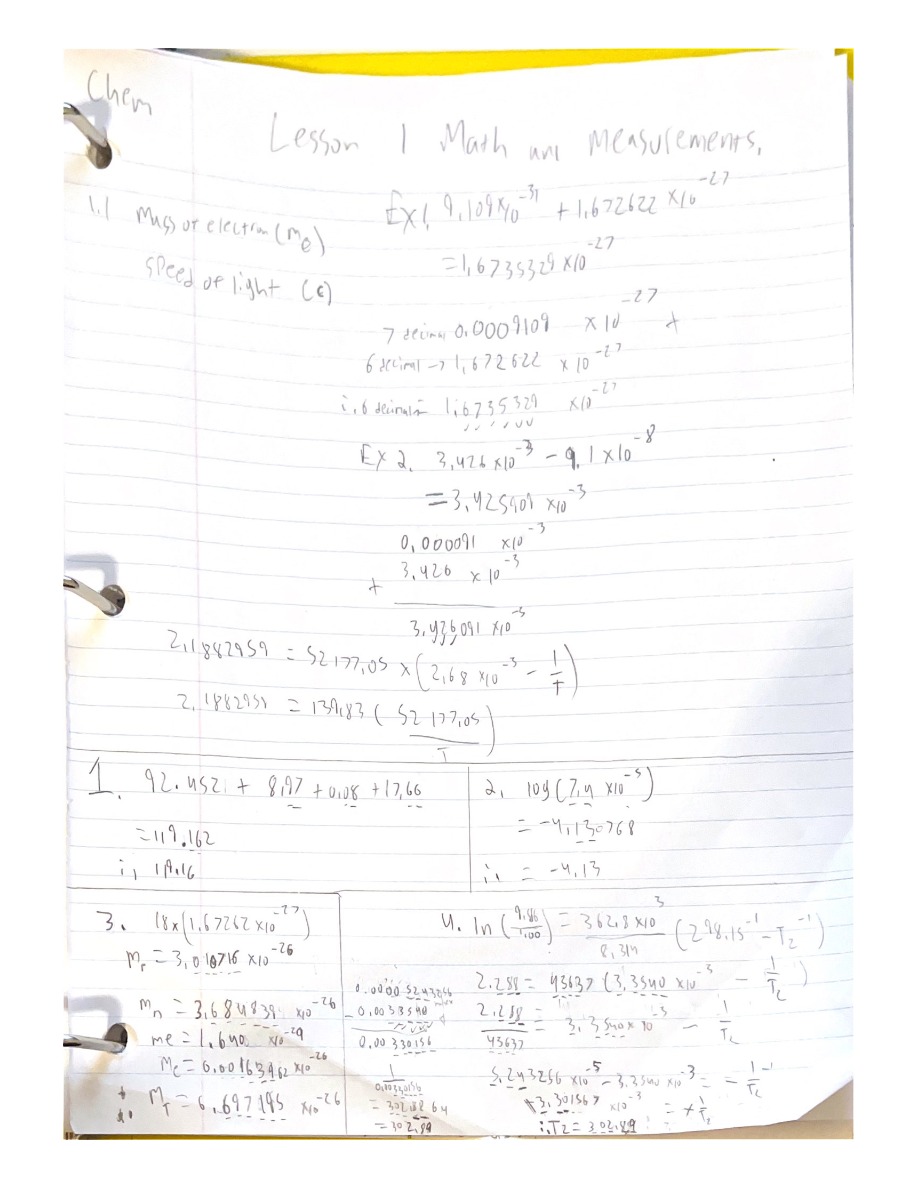 Chem
Lesson 1 Math and Measurements.
1.1 Mass of electron (me)
speed of light (c)
Ex1. 9,109×10^-31 + 1,672622 ×10^-27
= 1,6735329 ×10^-27
7 decimal 0.0009109 ×10^-27 +
6 decimal → 1,672622 × 10^-27
∴ 6 decimal = 1,6735329 ×10^-27
Ex 2. 3,426 ×10^-3 - 9.1 ×10^-8
= 3,425909 ×10^-3
0,000091 ×10^-3
+ 3,426 × 10^-3
3,426091 ×10^-3
2,1882959 = 52177,05 × (2,68 ×10^-3 - 1/T)
2,1882959 = 139,83 (52177,05/T)
1. 92.452 + 8,97 + 0,08 + 17,66
= 119.162
∴ 119.16
2. log(7,4 ×10^-5)
= -4,130768
∴ = -4,13
3. 18×(1,67262 ×10^-27)
Mr = 3,010716 ×10^-26
mn = 3,684839 ×10^-26
me = 1,640 ×10^-29
Me = 0,00163962 ×10^-26
MT = 6,697195 ×10^-26
4. ln(9.86/1.00) = 362,8 ×10^3/8,314 (298,15^-1 - T2^-1)
2.288 = 43637 (3,3540 ×10^-3 - 1/T2)
2.288/43637 = 3,3540×10^-3 - 1/T2
5,243256 ×10^-5 - 3,3540 ×10^-3 = -1/T2
+3,301567 ×10^-3 = +1/T2
∴ T2 = 302,89
0.00005243256
-0.0033540
0.00330156
1/0.00330156
= 302,8864
= 302,89